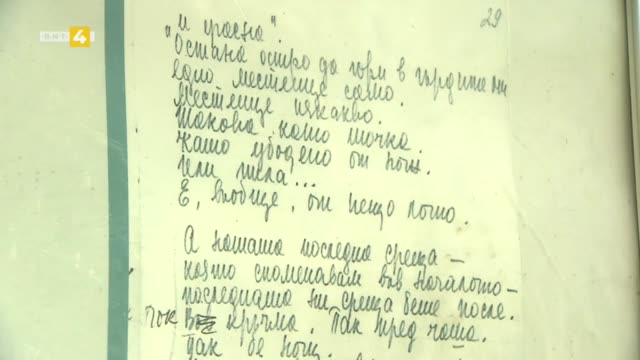 БНТ 4
29
и прасна".
"Остана остро да гори в гърдите ми
едно местенце само.
Местенце някакво.
Такова като точка.
Като убодено от нож.
Или игла...
Е, въобще, от нещо лошо.
А нашата последна среща –
която споменавам във началото –
последната ни среща беше после.
Пак кръчма. Пак пред чаша.
Пак бе нощ.